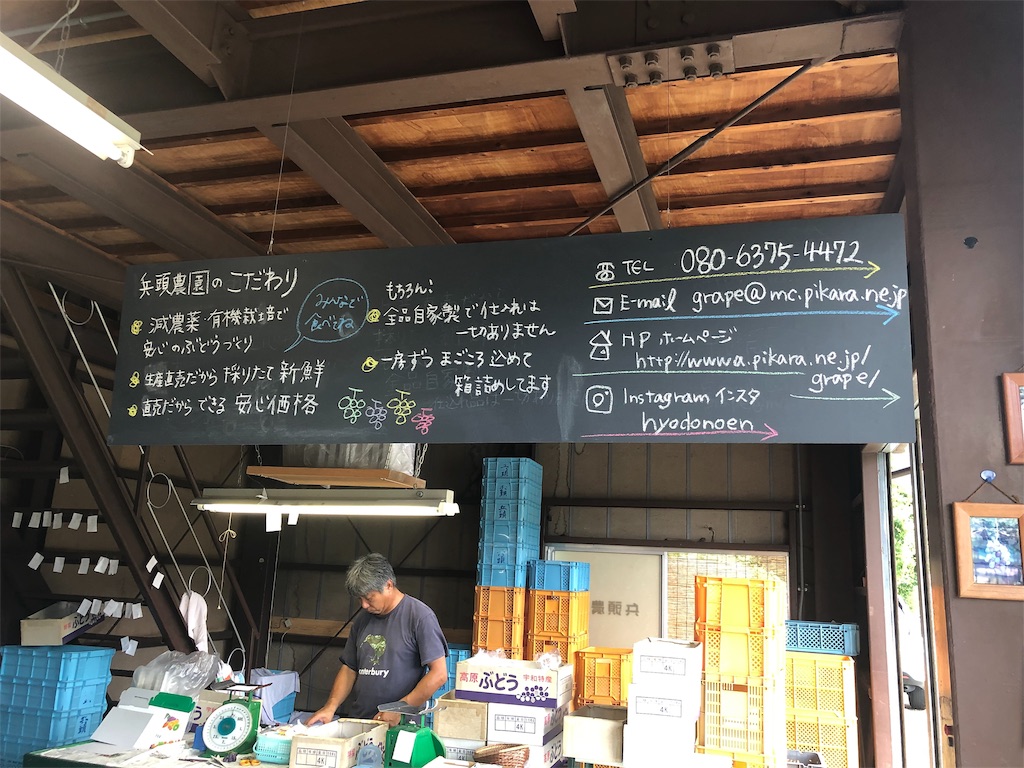 兵頭農園のこだわり
減農薬・有機栽培で
安心のぶどうづくり
生産直売だから採りたて新鮮
直売だからできる安心価格
みんなで
食べてね
もちろん!
全品自家製で仕入れは
一切ありません
一房ずつまごころ込めて
箱詰めしてます
TEL 080-6375-4472
E-mail grape@mc.pikara.ne.jp
HP ホームページ
http://www.a.pikara.ne.jp/
grape/
Instagram インスタ
hyodonoen
高原 ぶどう 宇和特産
4K
4K
4K